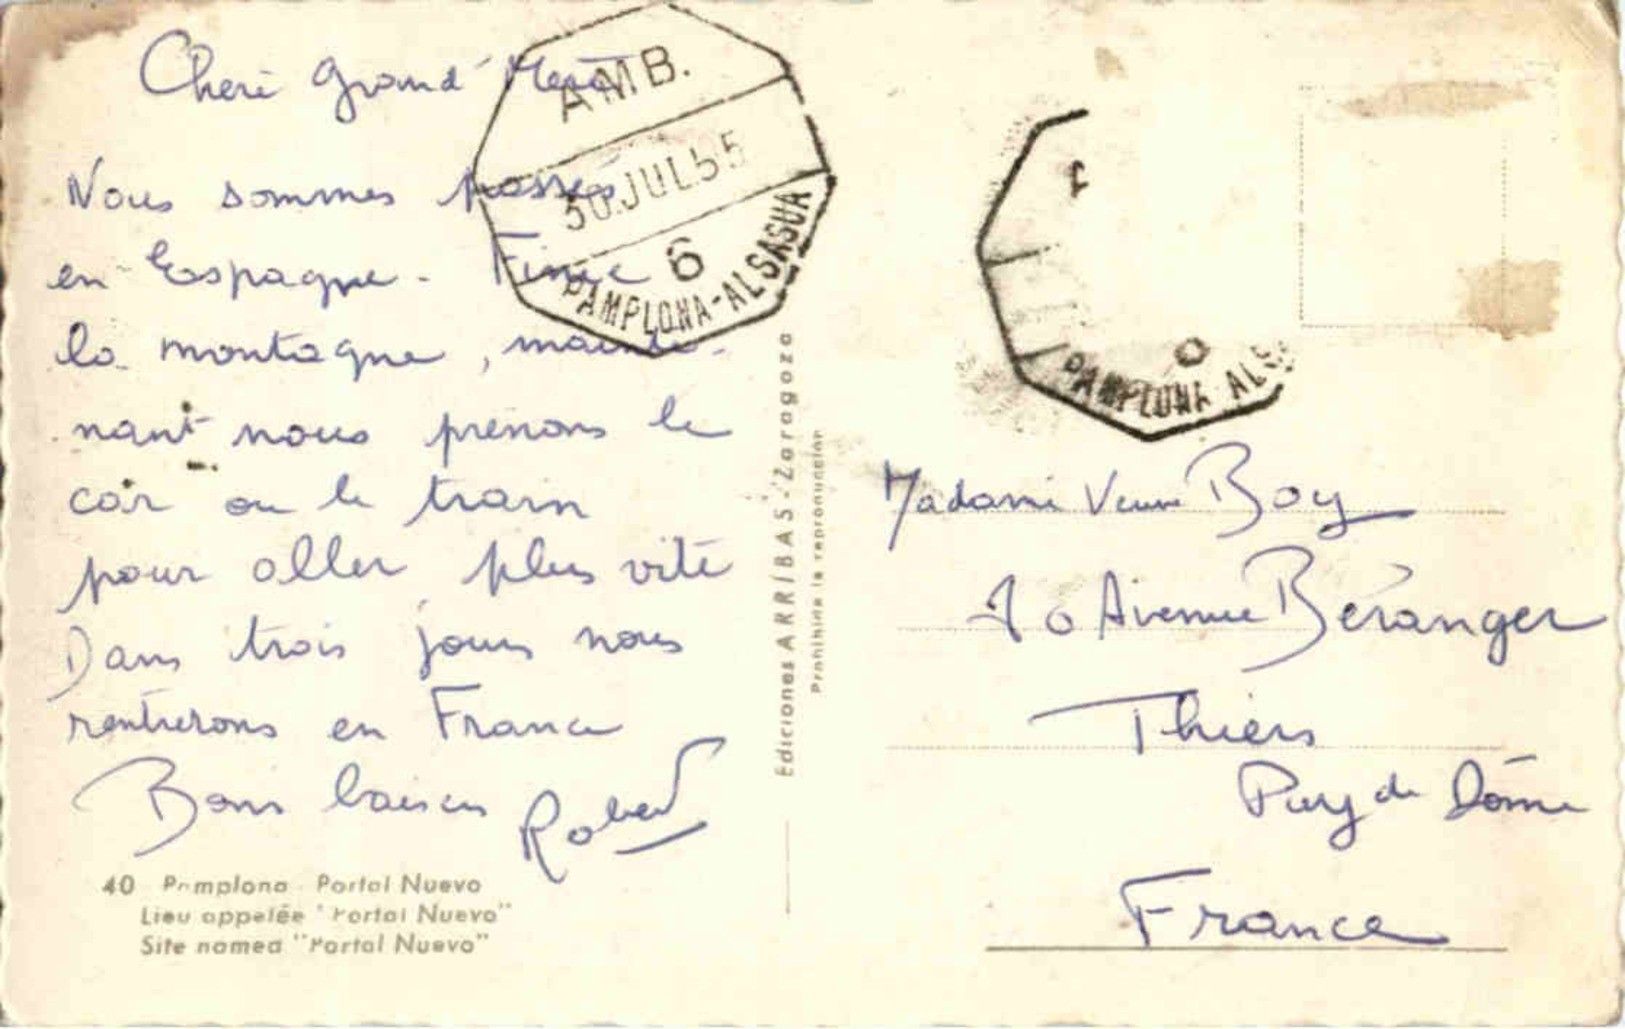 Cheri Grand' Mère
Nous sommes passés
en Espagne - Finie
la montagne, mainte-
nant nous prenons le
car ou le train
pour aller plus vite
Dans trois jours nous
rentrerons en France
Bons baisers Robert
40 Pamplona - Portal Nuevo
Lieu appelée "Portal Nuevo"
Site named "Portal Nuevo"
AMB.
30 JUL 55
6
PAMPLONA-ALSASUA
Ediciones ARRIBAS - Zaragoza
Prohibida la reproducción
PAMPLONA ALS
Madame Veuve Boy
10 Avenue Béranger
Thiers
Puy de Dôme
France